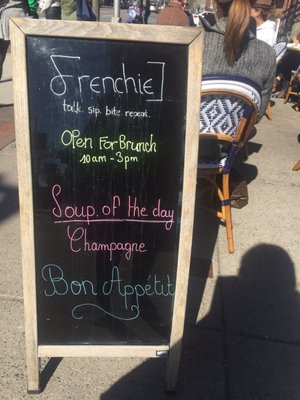 Frenchie
talk. sip. bite. repeat.
Open For Brunch
10am-3pm
Soup of the day
Champagne
Bon Appétit